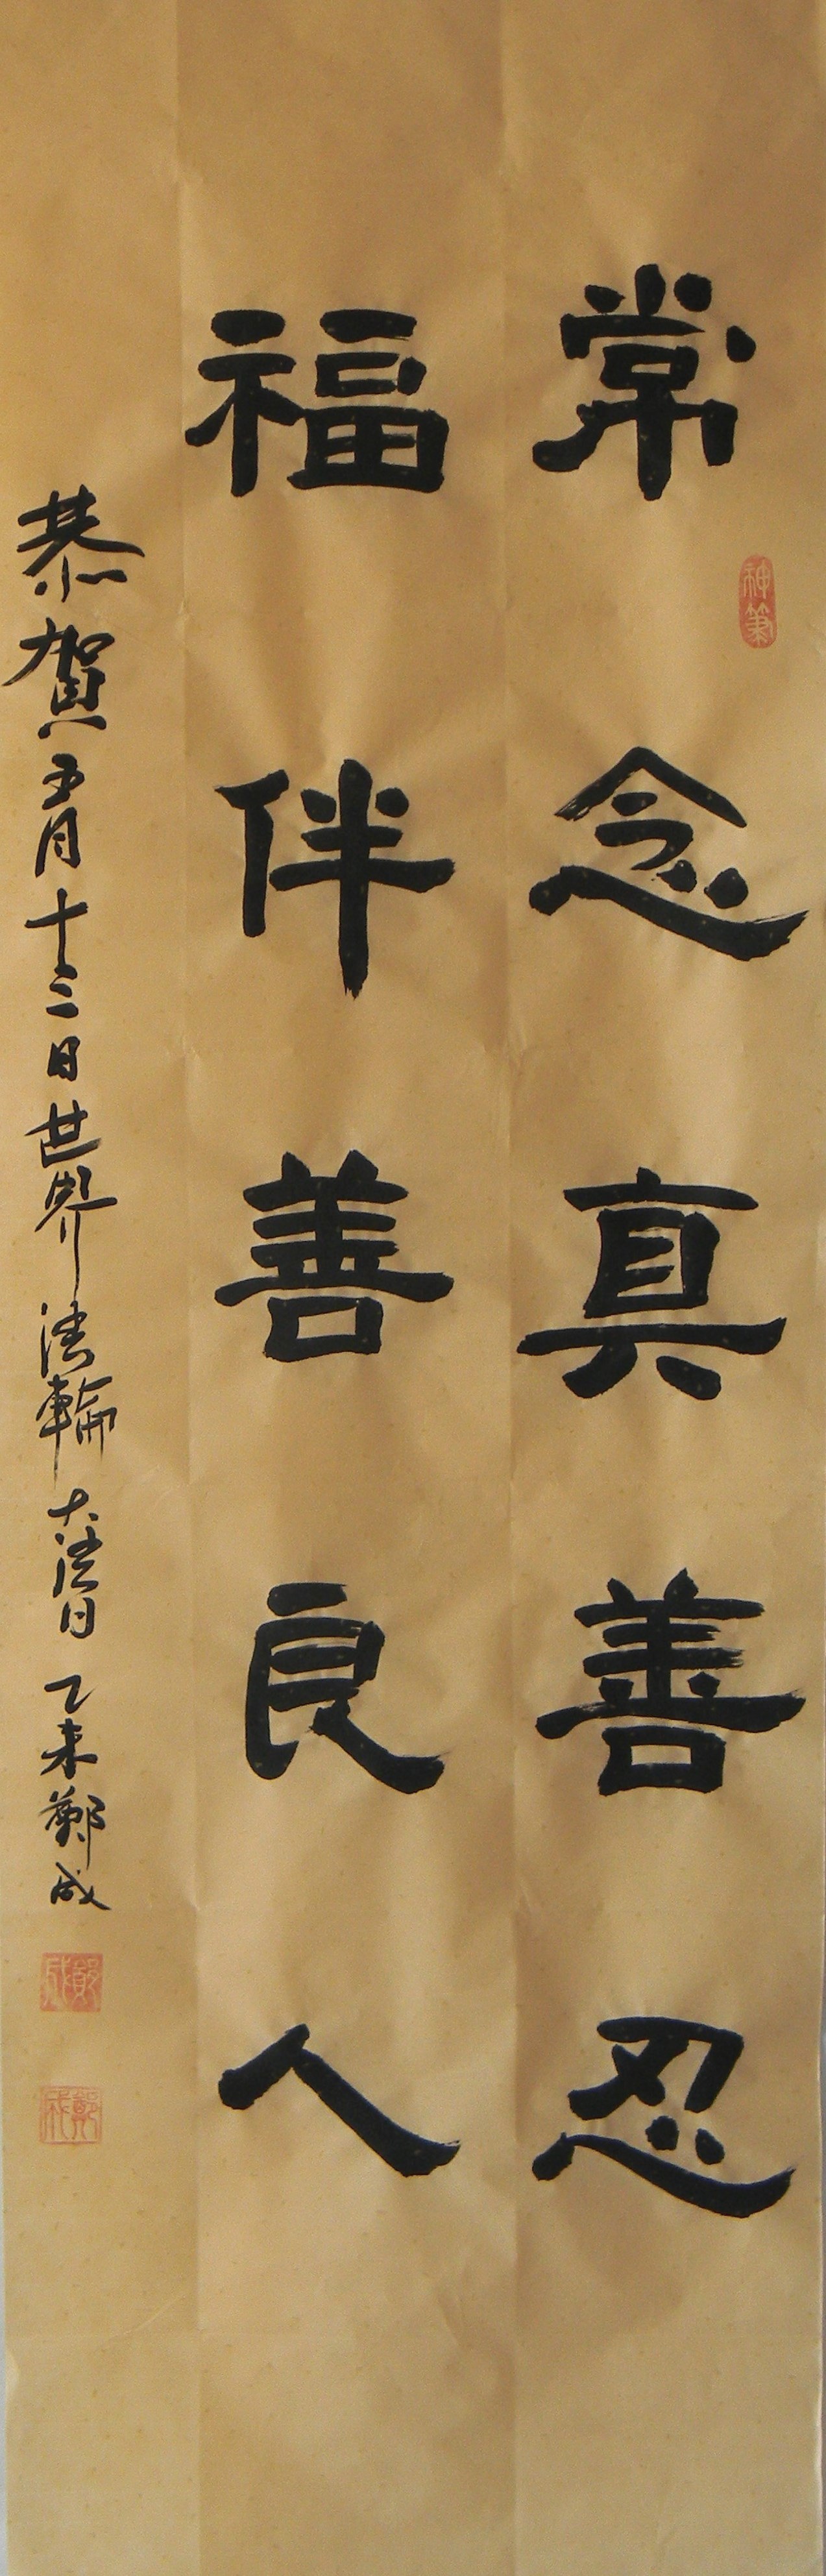 常念真善忍
神筆
福伴善良人
恭賀五月十三日世界法輪大法日 乙未 鄭成
鄭成
鄭成